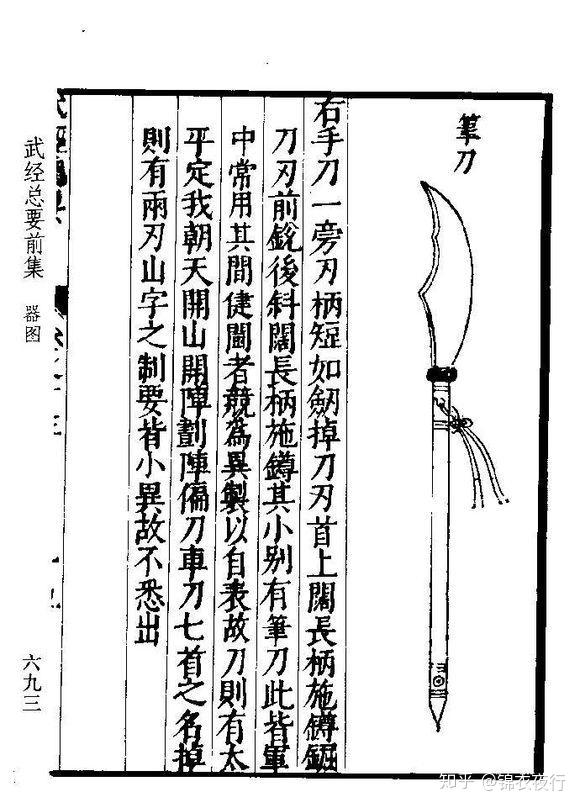 筆刀
右手刀一旁刃柄短如劒掉刀刃首上闊長柄施鐏
刀刃前銳後斜闊長柄施鐏其小别有筆刀此皆軍
中常用其間健鬭者競為異製以自表故刀則有太
平定我朝天開山開陣劃陣偏刀車刀七首之名掉
則有兩刃山字之制要皆小異故不悉出
武经总要前集 器图
六九三
知乎 @锦衣夜行